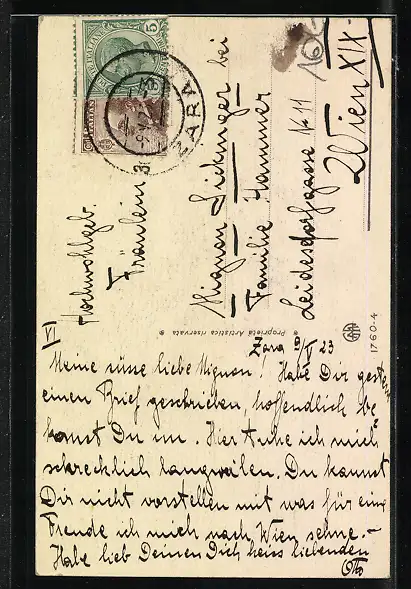 Hochwohlgeb.
Fräulein
Mignon Lichinger bei
Familie Hammer
Leidesdorfgasse № 11
Wien XIX.
ZARA
5
Proprietà Artistica riservata
1760-4
VI
Zara 9/V 23
Meine süsse liebe Mignon! Habe Dir gestern
einen Brief geschrieben, hoffendlich be
komst Du ihn. Hier tuhe ich mich
schrecklich langweilen. Du kannst
Dir nicht vorstellen mit was für eine
Freude ich mich nach Wien sehne.-
Habe lieb Deinen Dich heiss liebenden
Otto